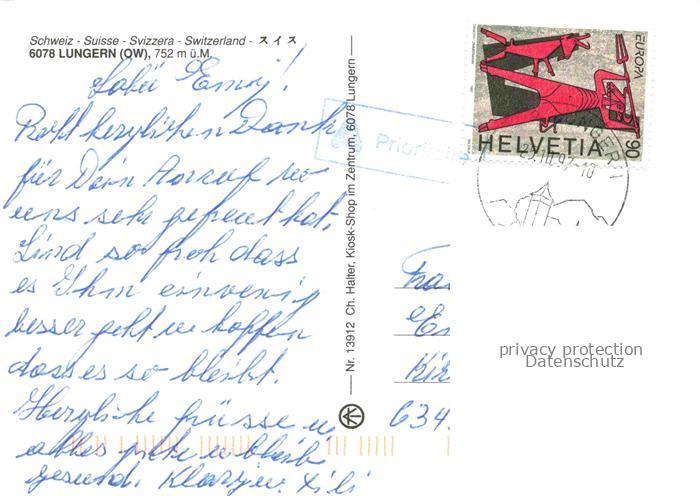 Schweiz - Suisse - Svizzera - Switzerland - スイス
6078 LUNGERN (OW), 752 m ü.M.
Salü Emmy!
Recht herzlichen Dank
für Dein Anruf wo
uns sehr gefreut hat.
Sind so froh dass
es Ihm einwenig
besser geht u hoffen
dass es so bleibt.
Herzliche Grüsse u
alles gute u bleib
gesund.
Nr. 13912 Ch. Halter, Kiosk-Shop im Zentrum, 6078 Lungern
Prioritaire
EUROPA
HELVETIA 90
LUNGERN
.10.97-10
Kir
634
privacy protection
Datenschutz